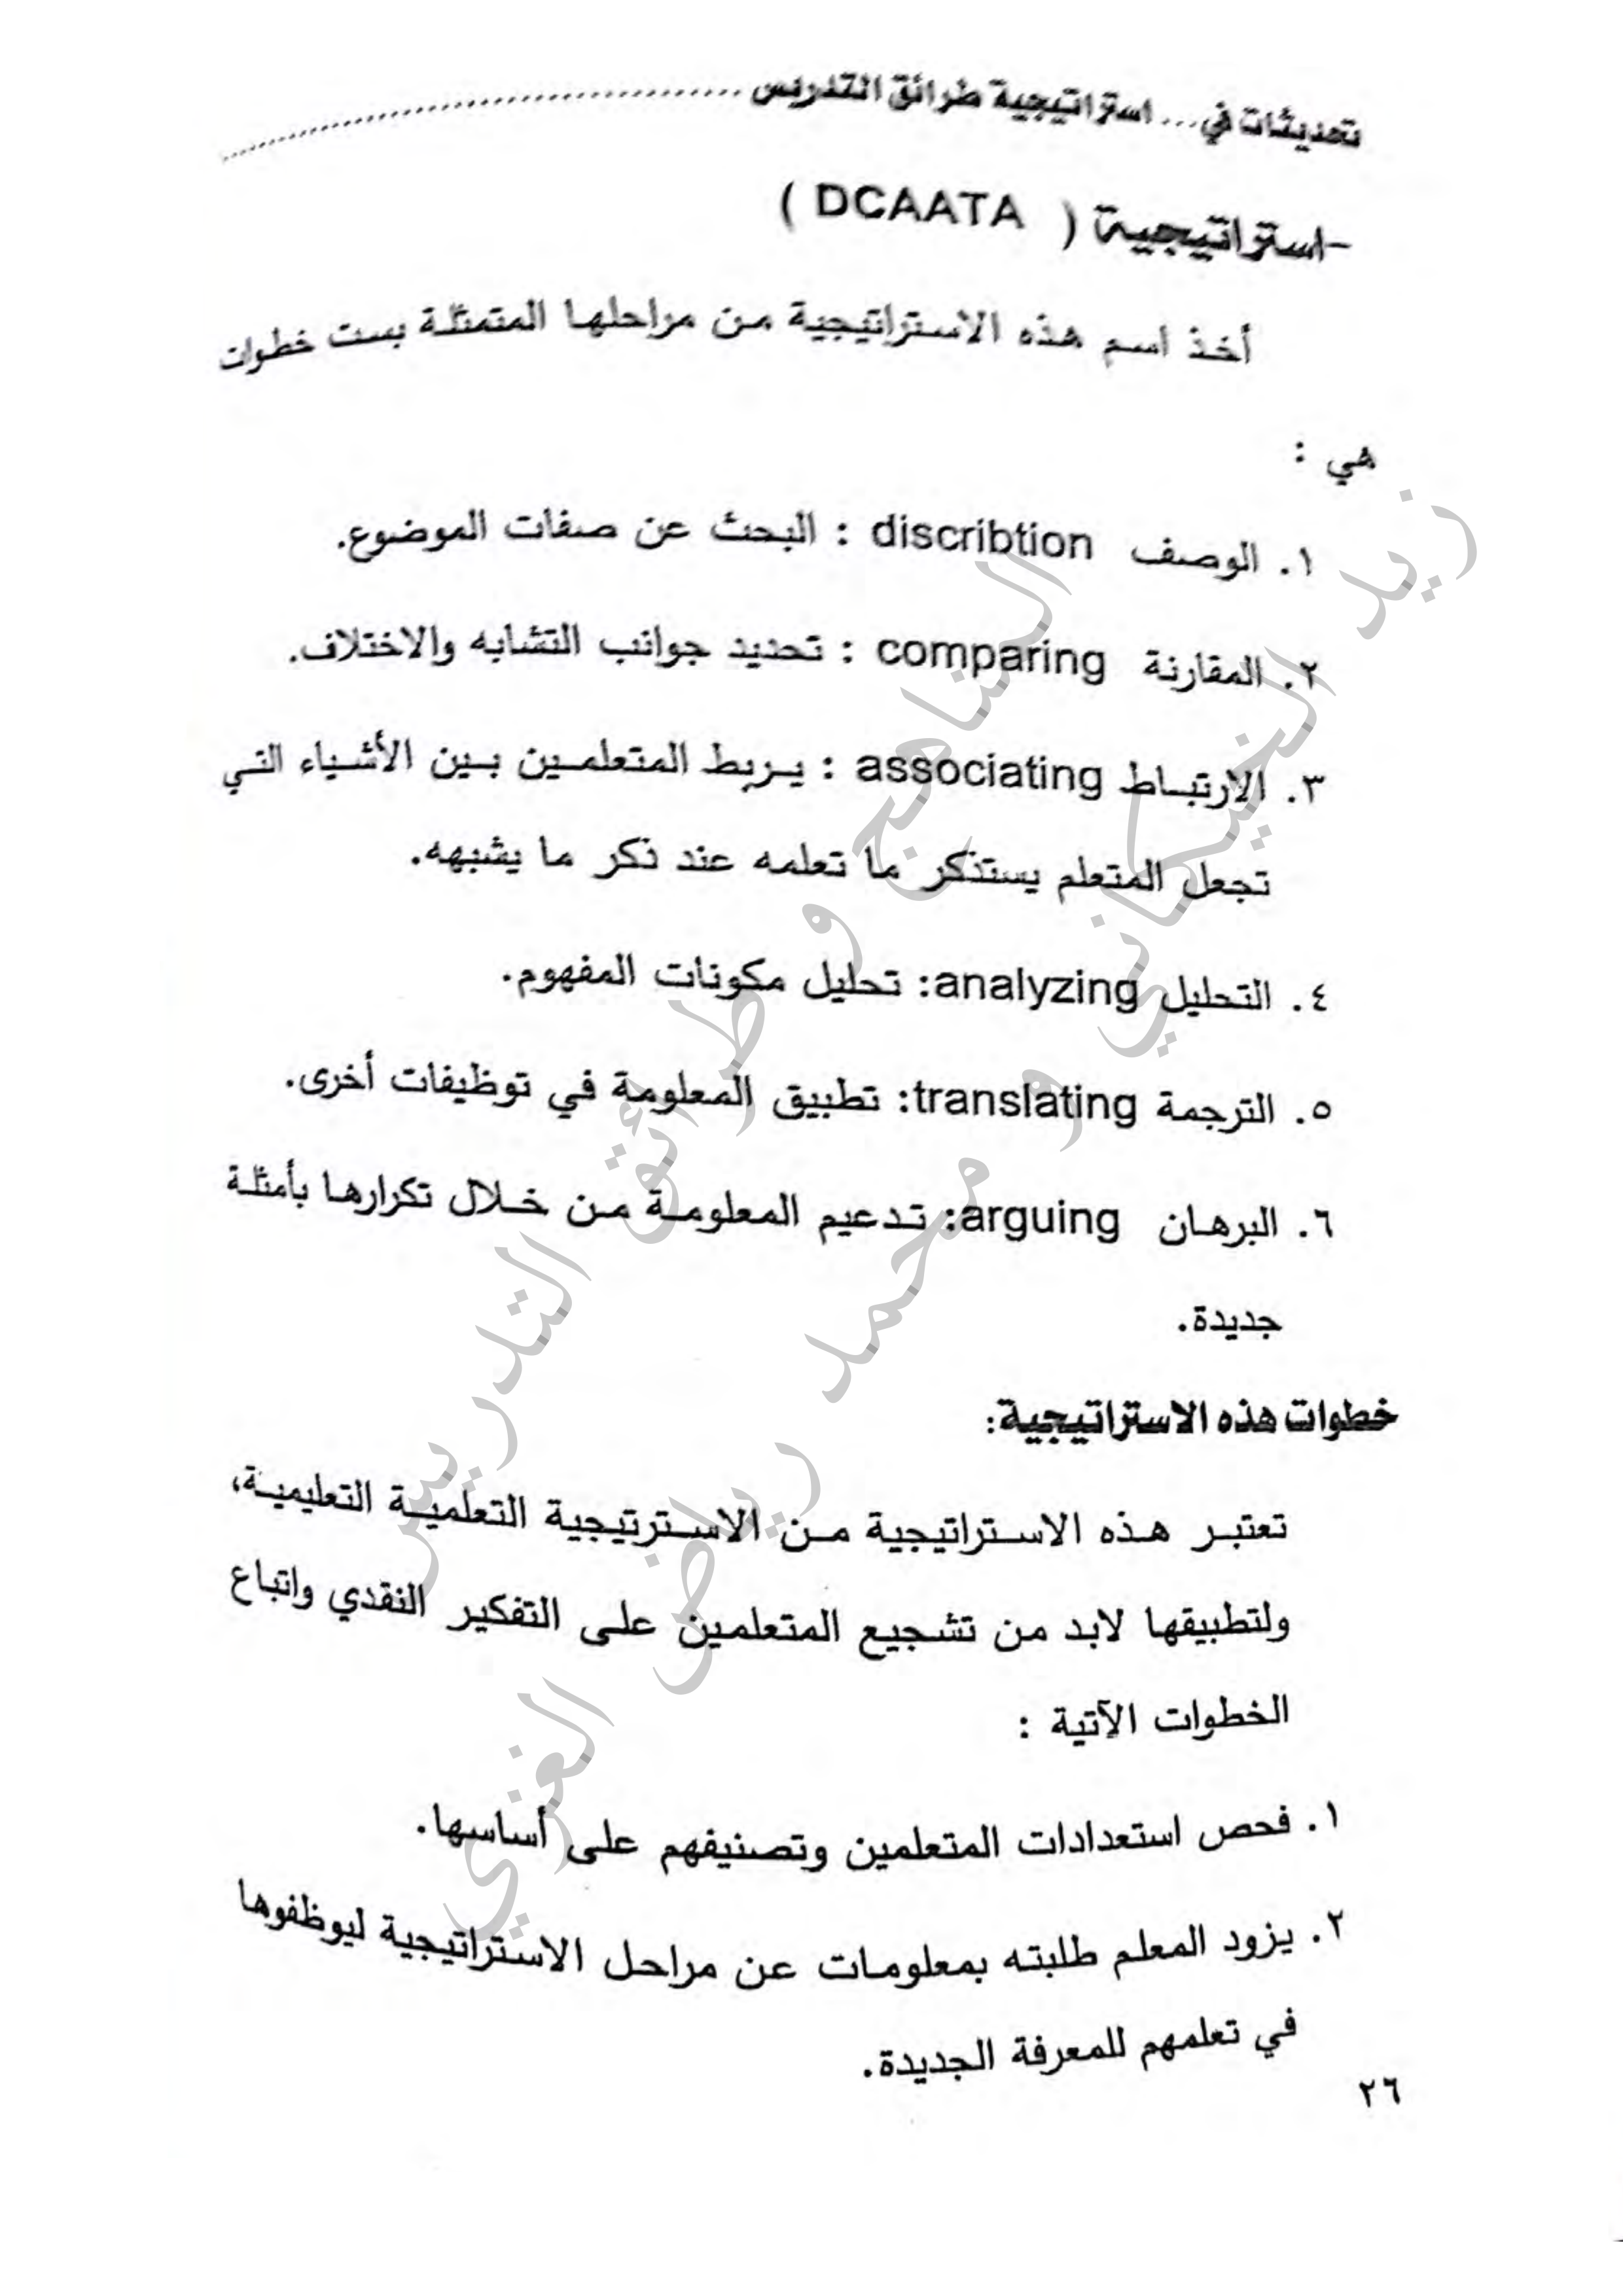 تحديثات في... استراتيجية طرائق التدريس ........................................
-استراتيجية ( DCAATA )
أخذ اسم هذه الاستراتيجية من مراحلها المتمثلة بست خطوات
هي :
١. الوصف discribtion : البحث عن صفات الموضوع.
٢. المقارنة comparing : تحديد جوانب التشابه والاختلاف.
٣. الارتباط associating : يربط المتعلمين بين الأشياء التي
تجعل المتعلم يستذكر ما تعلمه عند ذكر ما يشبهه.
٤. التحليل analyzing: تحليل مكونات المفهوم.
٥. الترجمة translating: تطبيق المعلومة في توظيفات أخرى.
٦. البرهان arguing: تدعيم المعلومة من خلال تكرارها بأمثلة
جديدة.
خطوات هذه الاستراتيجية:
تعتبر هذه الاستراتيجية من الاسترتيجية التعلمية التعليمية،
ولتطبيقها لابد من تشجيع المتعلمين على التفكير النقدي واتباع
الخطوات الآتية :
١. فحص استعدادات المتعلمين وتصنيفهم على أساسها.
٢. يزود المعلم طلبته بمعلومات عن مراحل الاستراتيجية ليوظفوها
في تعلمهم للمعرفة الجديدة.
٢٦
المناهج و طرائق التدريس
زيد الخيكاني و محمد رياض الغزي